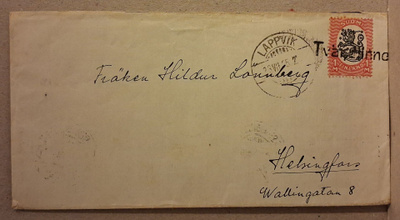 LAPPVIK
Tvärminne
Fröken Hildur Lönnberg
Helsingfors
Wallingatan 8